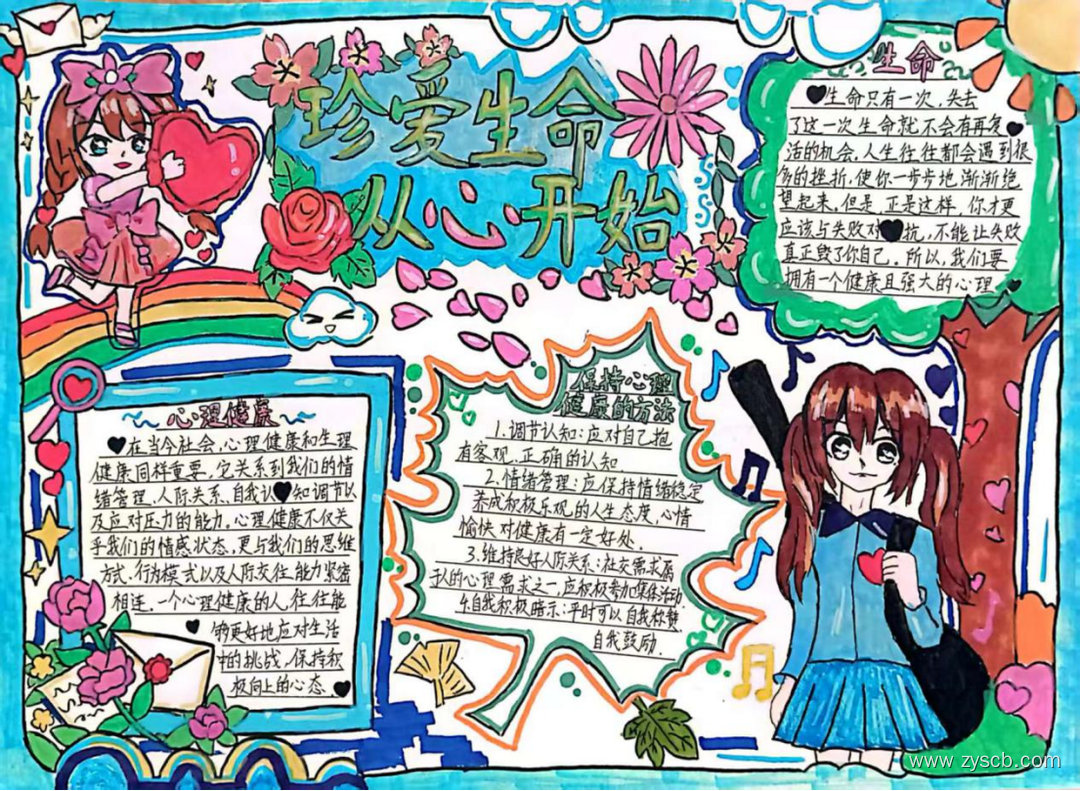 珍爱生命
从心开始
生命
生命只有一次,失去
了这一次生命就不会有再复
活的机会,人生往往都会遇到很
多的挫折,使你一步步地渐渐绝
望起来,但是正是这样,你才更
应该与失败对抗,不能让失败
真正毁了你自己。所以,我们要
拥有一个健康且强大的心理
心理健康
在当今社会,心理健康和生理
健康同样重要,它关系到我们的情
绪管理、人际关系、自我认知调节以
及应对压力的能力,心理健康不仅关
乎我们的情感状态,更与我们的思维
方式、行为模式以及人际交往能力紧密
相连。一个心理健康的人,往往能
够更好地应对生活
中的挑战,保持积
极向上的心态
保持心理
健康的方法
1.调节认知:应对自己抱
有客观、正确的认知
2.情绪管理:应保持情绪稳定
养成积极乐观的人生态度,心情
愉快对健康有一定好处。
3.维持良好人际关系:社交需求属
于人的心理需求之一,应积极参加集体活动
4.自我积极暗示:平时可以自我称赞
自我鼓励.
www.zyscb.com